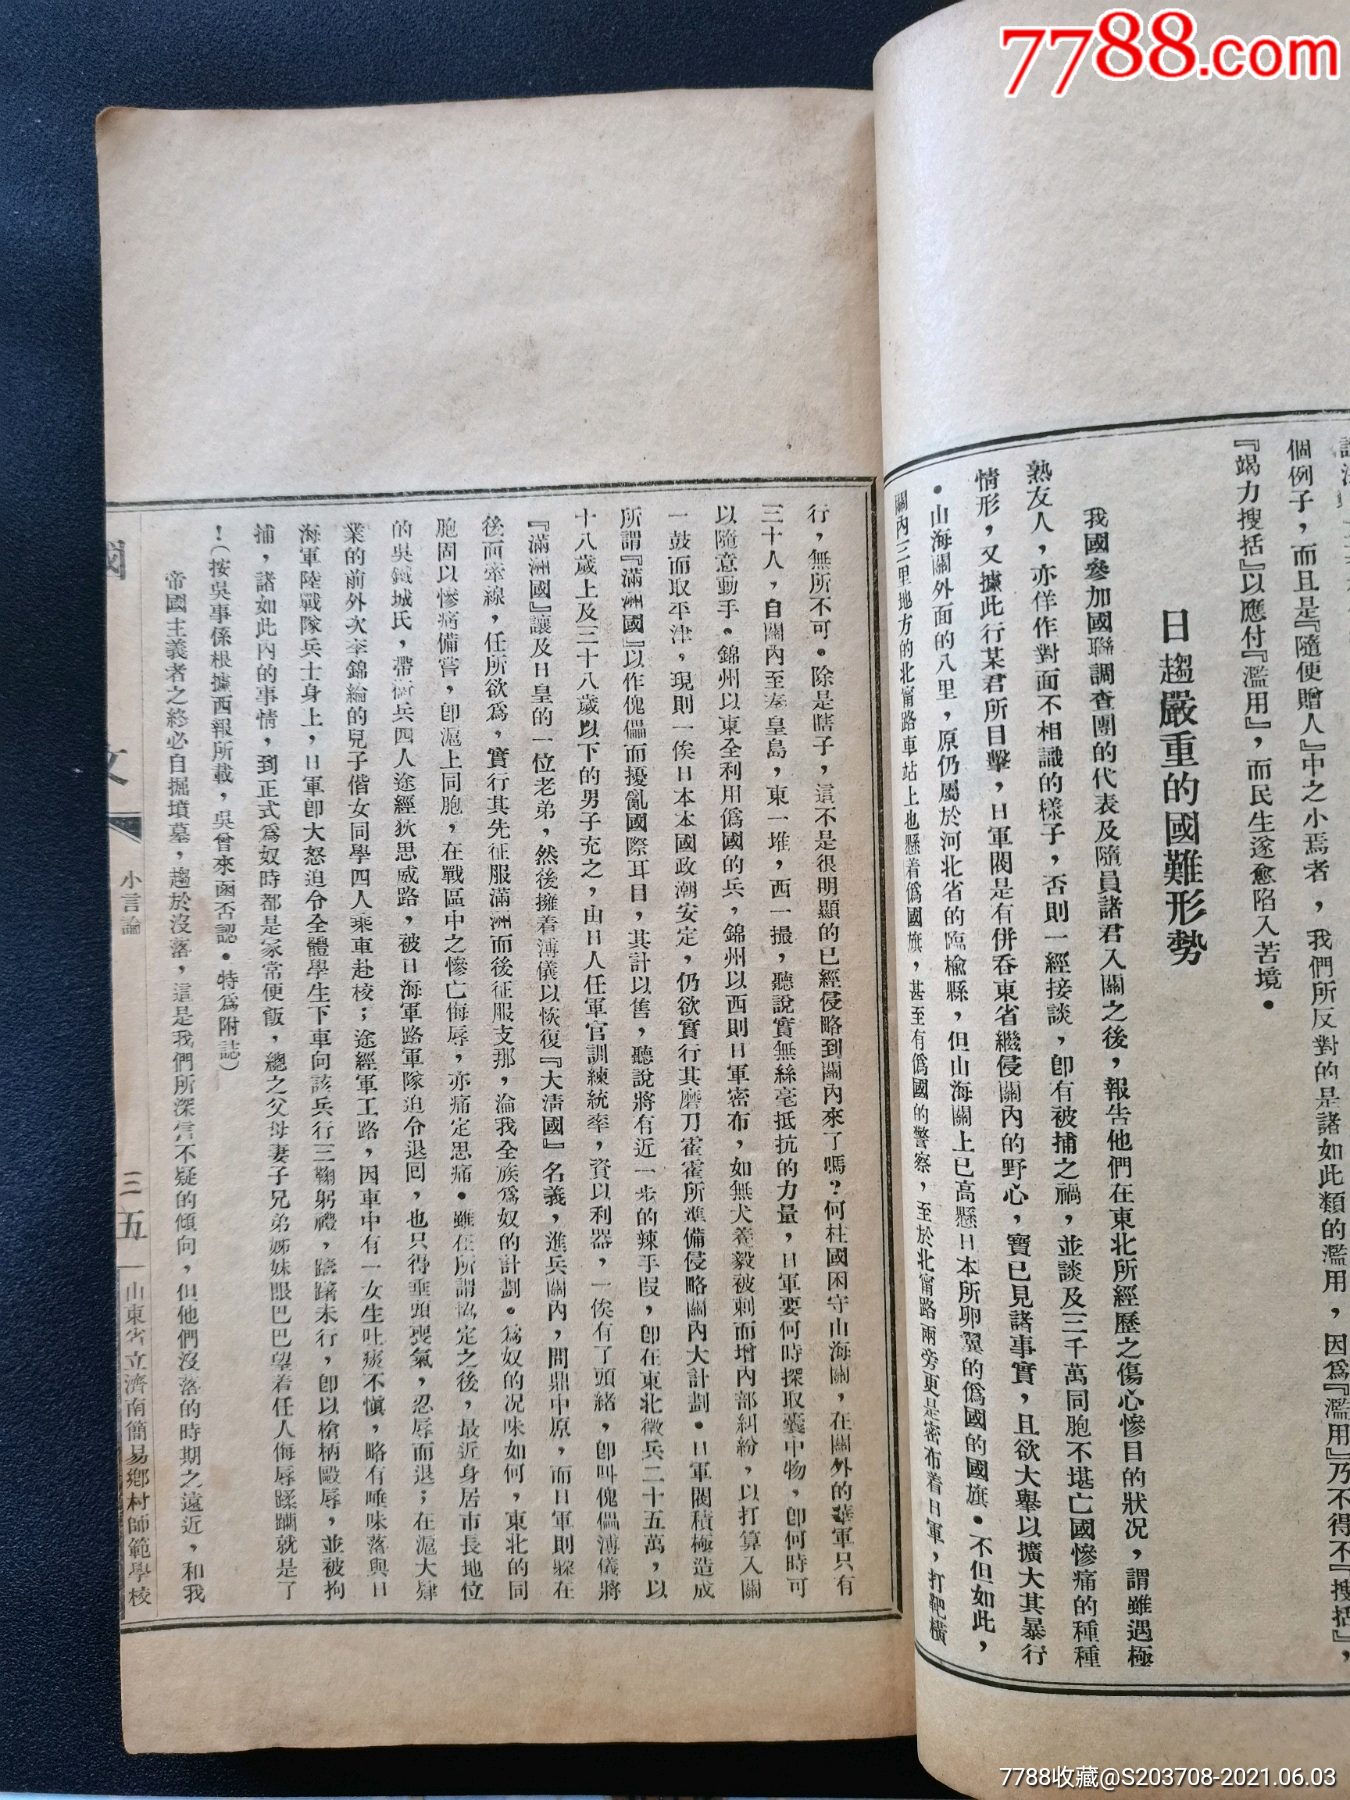 7788.com
個例子，而且是『隨便贈人』中之小焉者，我們所反對的是諸如此類的濫用，因爲『濫用』乃不得不『搜括』，
『竭力搜括』以應付『濫用』，而民生遂愈陷入苦境。
日趨嚴重的國難形勢
我國參加國聯調查團的代表及隨員諸君入關之後，報告他們在東北所經歷之傷心慘目的狀況，謂雖遇極
熟友人，亦佯作對面不相識的樣子，否則一經接談，卽有被捕之禍，並談及三千萬同胞不堪亡國慘痛的種種
情形，又據此行某君所目擊，日軍閥是有併吞東省繼侵關內的野心，實已見諸事實，且欲大舉以擴大其暴行
。山海關外面的八里，原仍屬於河北省的臨楡縣，但山海關上已高懸日本所卵翼的僞國的國旗。不但如此，
關內三里地方的北甯路車站上也懸着僞國旗，甚至有僞國的警察，至於北甯路兩旁更是密布着日軍，打靶橫
行，無所不可。除是瞎子，這不是很明顯的已經侵略到關內來了嗎？何柱國困守山海關，在關外的華軍只有
三十人，自關內至秦皇島，東一堆，西一撮，聽說實無絲毫抵抗的力量，日軍要何時探取囊中物，卽何時可
以隨意動手。錦州以東全利用僞國的兵，錦州以西則日軍密布，如無犬養毅被刺而增內部糾紛，以打算入關
一鼓而取平津，現則一俟日本本國政潮安定，仍欲實行其磨刀霍霍所準備侵略關內大計劃。日軍閥積極造成
所謂『滿洲國』以作傀儡而擾亂國際耳目，其計以售，聽說將有近一步的辣手段，卽在東北徵兵二十五萬，以
十八歲上及三十八歲以下的男子充之，由日人任軍官訓練統率，資以利器，一俟有了頭緒，卽叫傀儡溥儀將
『滿洲國』讓及日皇的一位老弟，然後擁着溥儀以恢復『大淸國』名義，進兵關內，問鼎中原，而日軍則躱在
後面牽線，任所欲爲，實行其先征服滿洲而後征服支那，淪我全族爲奴的計劃。爲奴的况味如何，東北的同
胞固以慘痛備嘗，卽滬上同胞，在戰區中之慘亡侮辱，亦痛定思痛。雖在所謂協定之後，最近身居市長地位
的吳鐵城氏，帶衞兵四人途經狄思威路，被日海軍路軍隊迫令退回，也只得垂頭喪氣，忍辱而退；在滬大肄
業的前外次李錦綸的兒子偕女同學四人乘車赴校；途經軍工路，因車中有一女生吐痰不愼，略有唾味落與日
海軍陸戰隊兵士身上，日軍卽大怒迫令全體學生下車向該兵行三鞠躬禮，踌躇未行，卽以槍柄毆辱，並被拘
捕，諸如此內的事情，到正式爲奴時都是家常便飯，總之父母妻子兄弟姊妹眼巴巴望着任人侮辱蹂躪就是了
！（按吳事係根據西報所載，吳曾來函否認。特爲附誌）
帝國主義者之終必自掘墳墓，趨於沒落，這是我們所深信不疑的傾向，但他們沒落的時期之遠近，和我
國 文
小言論
三五
山東省立濟南簡易鄉村師範學校
7788收藏@S203708-2021.06.03